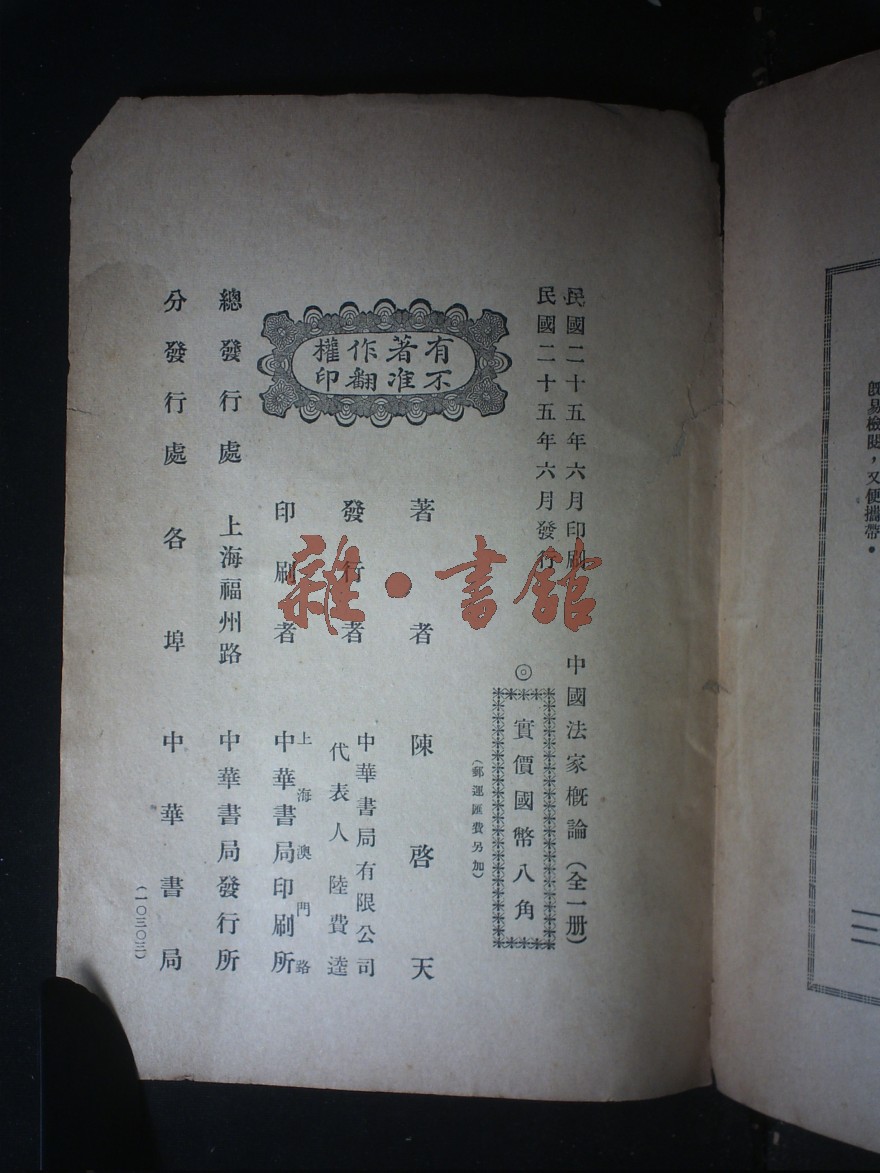 既易檢閱，又便攜帶。
民國二十五年六月印刷
民國二十五年六月發行
中國法家概論（全一册）
◎
實價國幣八角
（郵運匯費另加）
有著作權
不准翻印
著者 陳啓天
發行者 中華書局有限公司
代表人 陸費逵
印刷者 上海澳門路
中華書局印刷所
總發行處 上海福州路 中華書局發行所
分發行處 各埠 中華書局
（一〇三〇三）
雜·書館